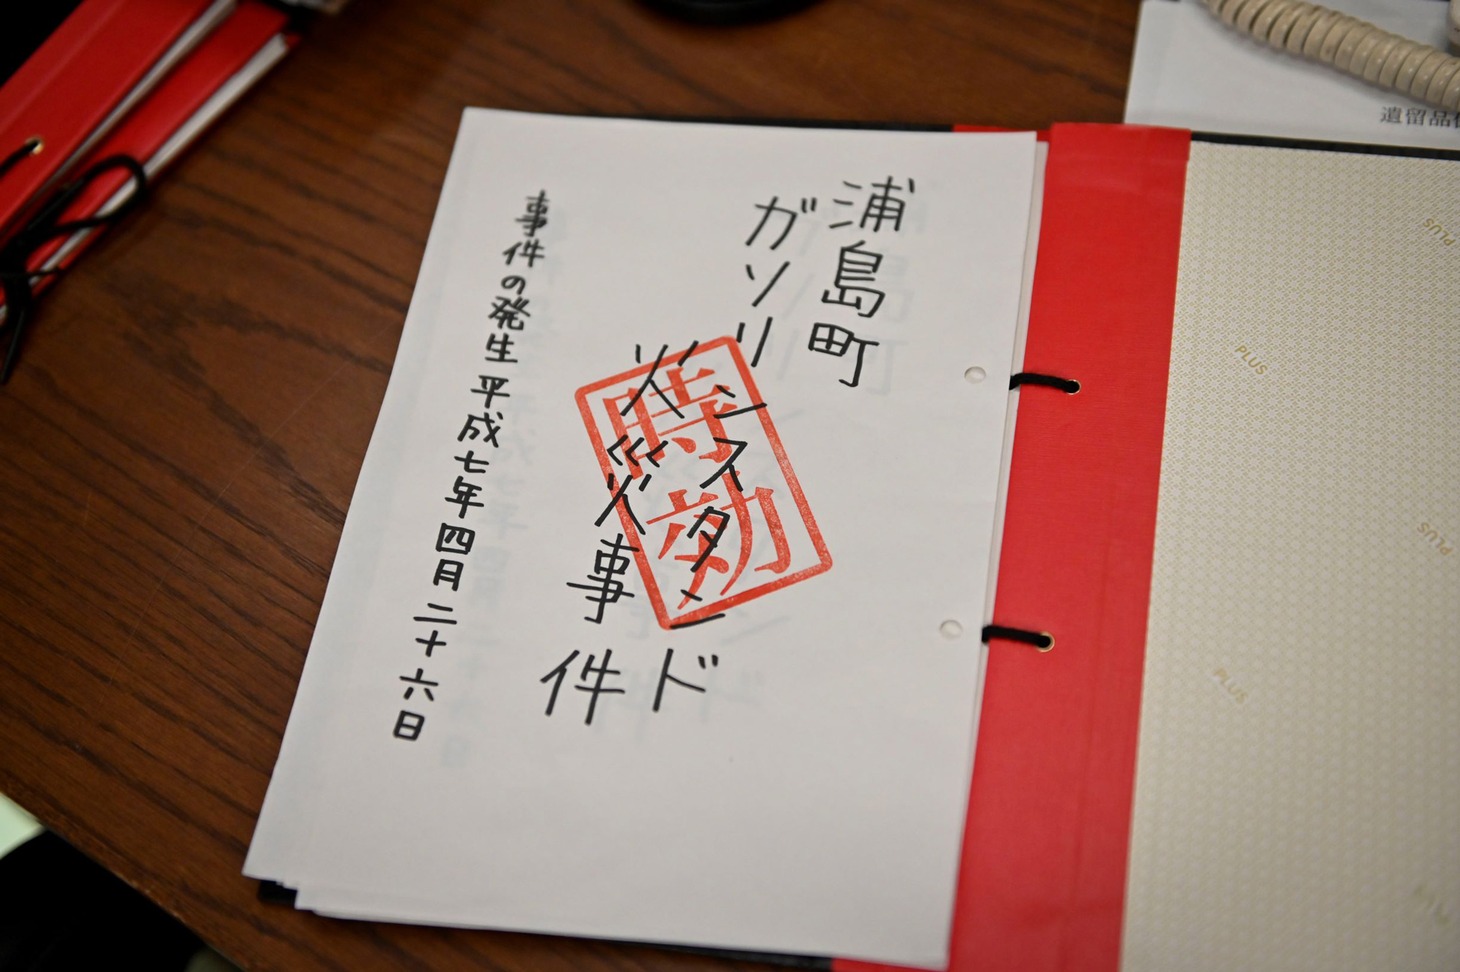 浦島町
ガソリンスタンド
火災事件
事件の発生 平成七年四月二十六日
時効
遺留品
PLUS
PLUS
PLUS
PLUS